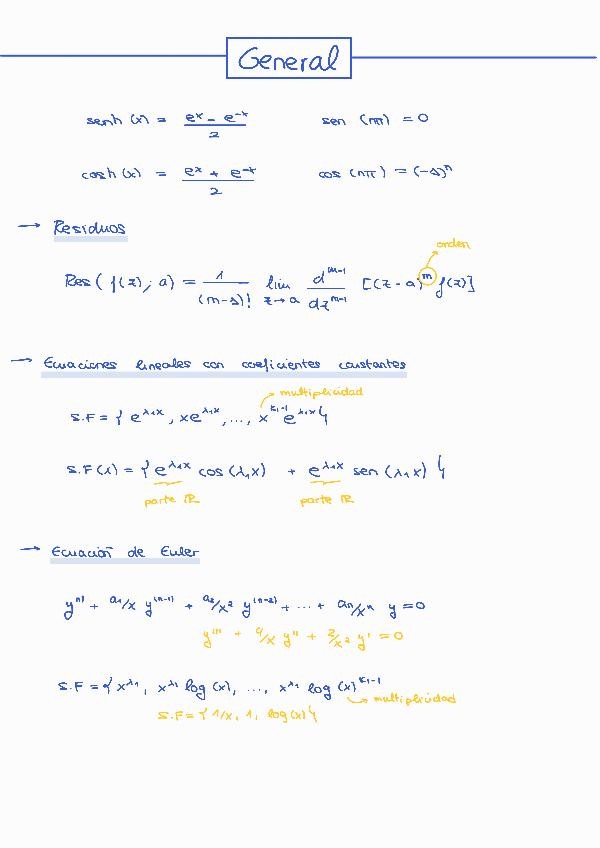 General
senh (x) = (e^x - e^-x) / 2    sen (nπ) = 0
cosh (x) = (e^x + e^-x) / 2    cos (nπ) = (-1)^n
→ Residuos
orden
Res( f(z); a) = 1/(m-1)! lim z→a d^m-1/dz^m-1 [(z-a)^m f(z)]
→ Ecuaciones lineales con coeficientes constantes
multiplicidad
S.F = { e^λ1x, xe^λ1x, ..., x^k1-1 e^λ1x }
S.F (x) = { e^λ1x cos (λ1x) + e^λ1x sen (λ1x) }
parte ℝ    parte ℝ
→ Ecuación de Euler
y^n) + a1/x y^(n-1) + a2/x² y^(n-2) + ... + an/x^n y = 0
y''' + 4/x y'' + 2/x² y' = 0
S.F = { x^λ1, x^λ1 log (x), ..., x^λ1 log (x)^k1-1
multiplicidad
S.F = { 1/x, 1, log(x) }